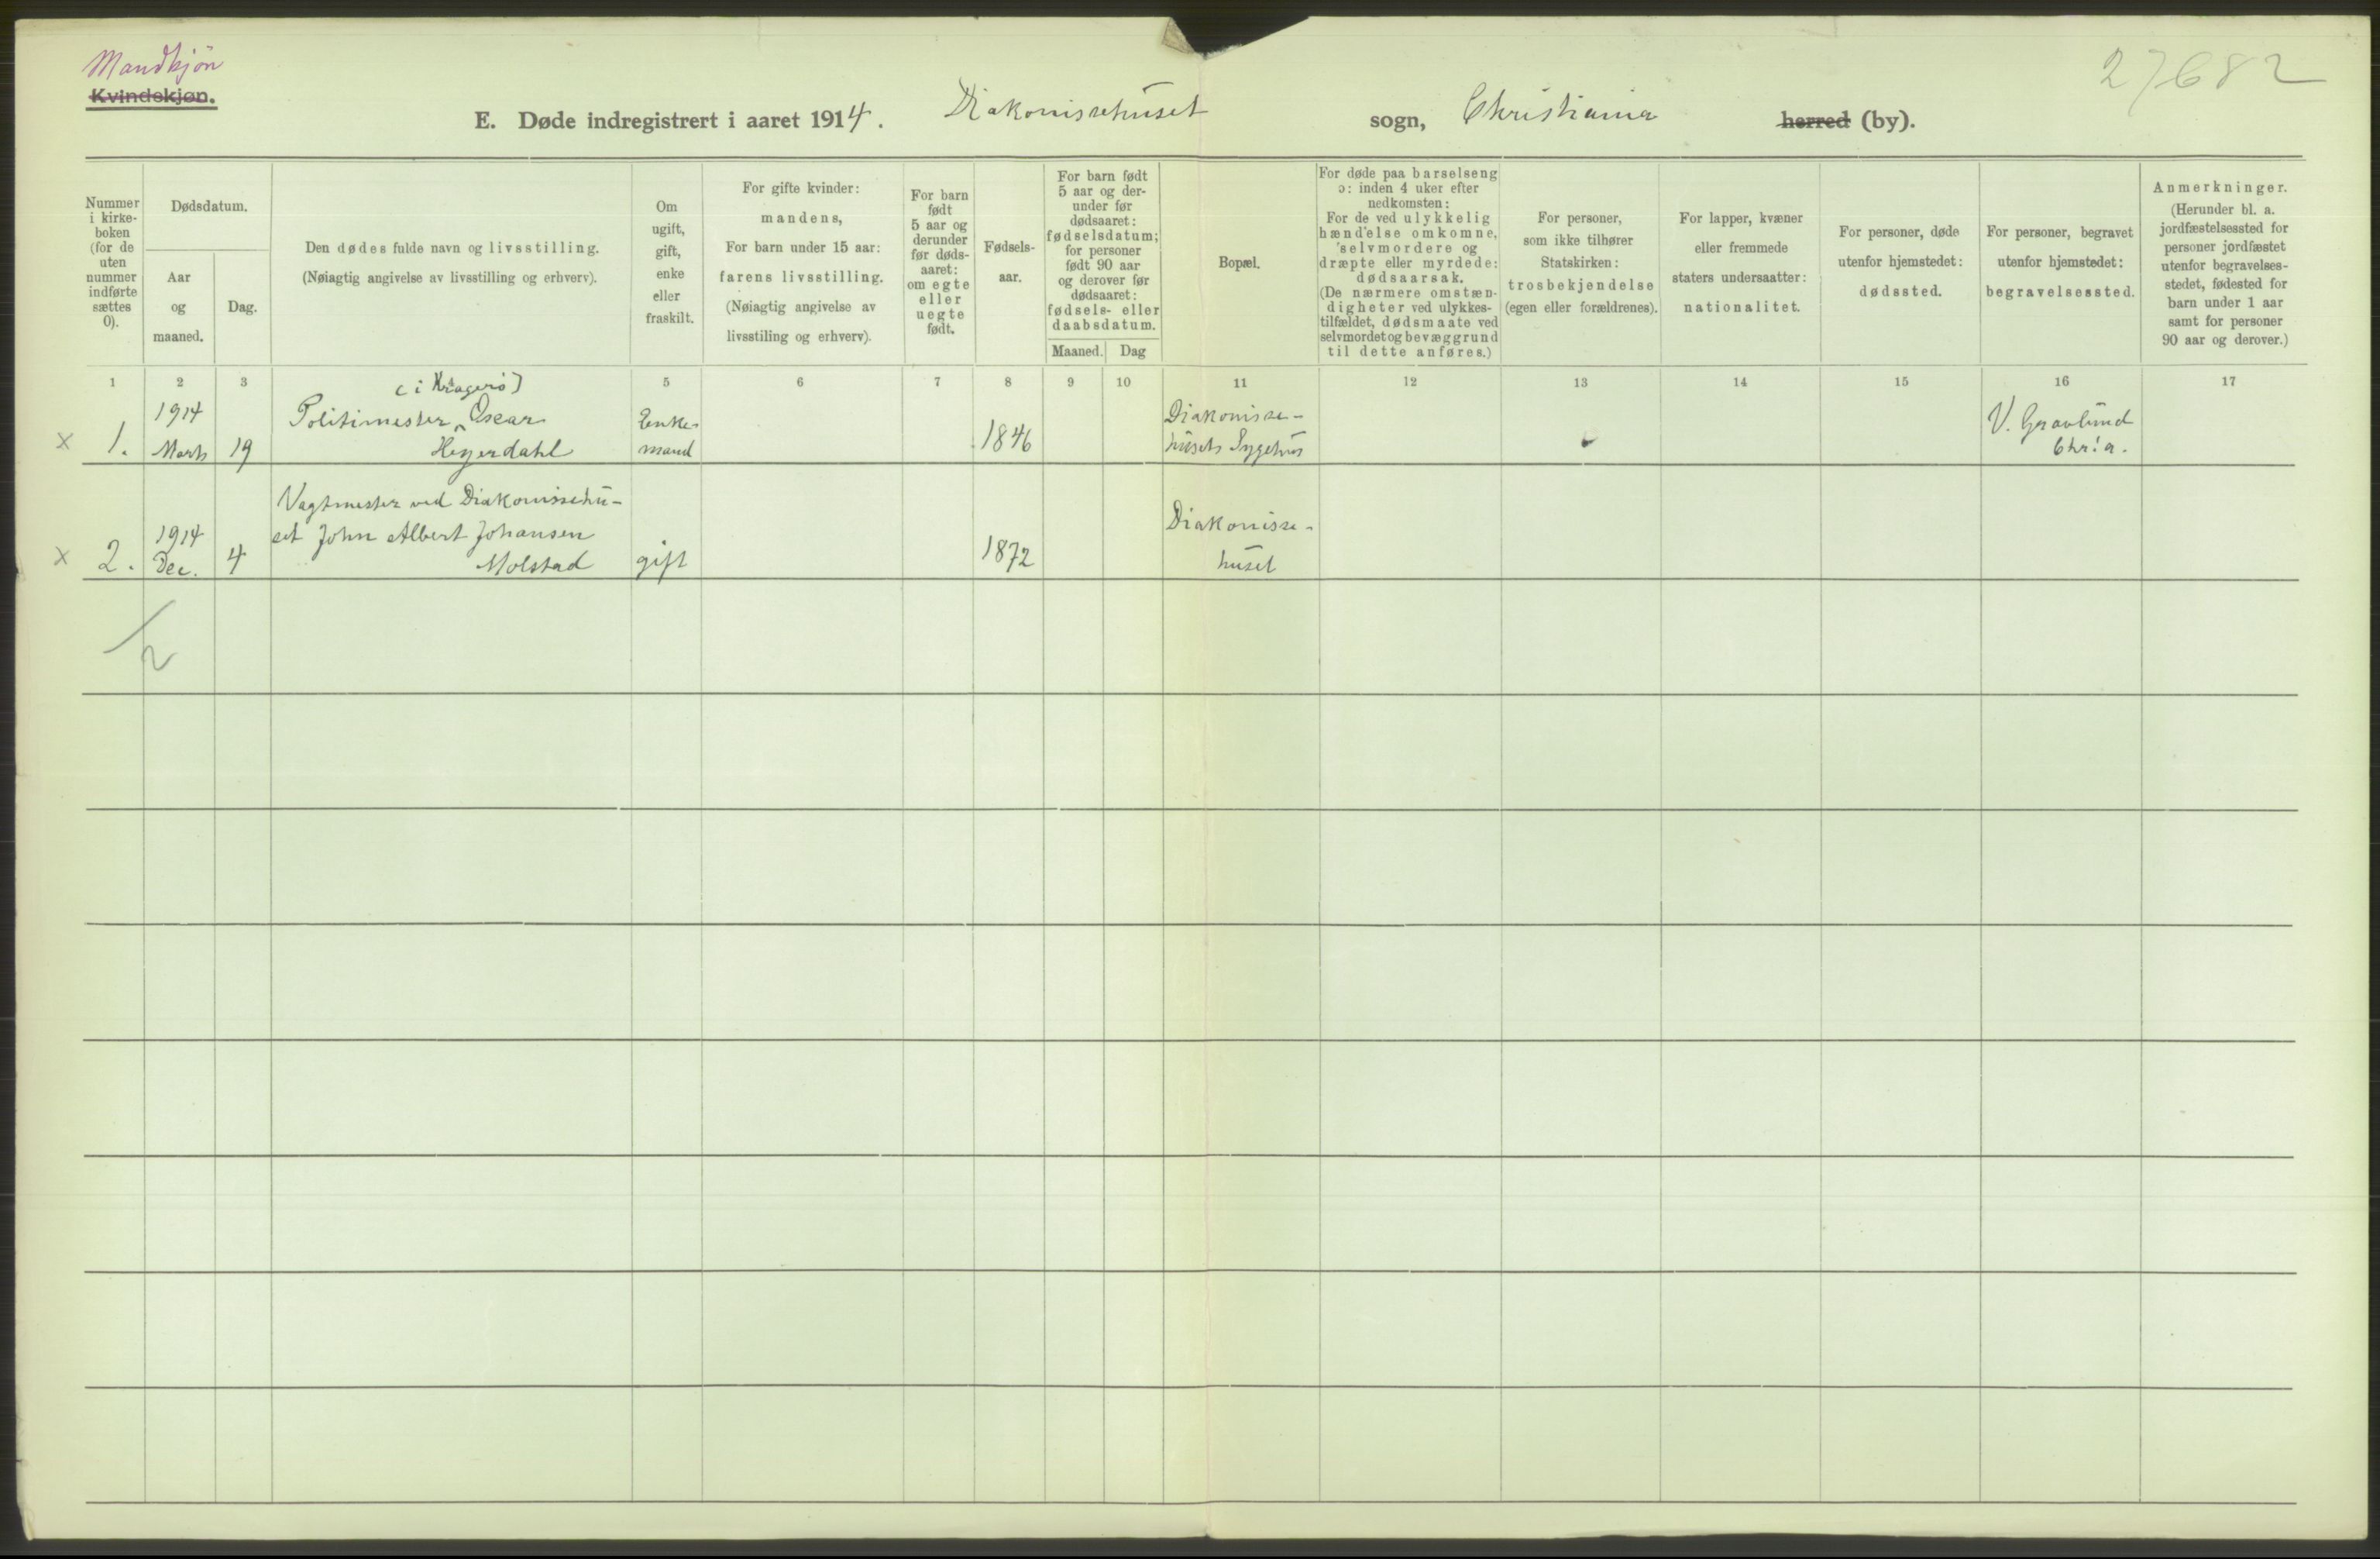 Mandkjön
Kvindekjøn.
27682
E. Døde indregistrert i aaret 1914. Diakonissehuset sogn, Christiania herred (by).
Nummer
i kirke-
boken
(for de
uten
nummer
indførte
sættes
0).
Dødsdatum.
Aar
og
maaned.
Dag.
Den dødes fulde navn og livsstilling.
(Nøiagtig angivelse av livsstilling og erhverv).
Om
ugift,
gift,
enke
eller
fraskilt.
For gifte kvinder:
mandens,
For barn under 15 aar:
farens livsstilling.
(Nøiagtig angivelse av
livsstiling og erhverv).
For barn
født
5 aar og
derunder
før døds-
aaret:
om egte
eller
uegte
født.
Fødsels-
aar.
For barn født
5 aar og der-
under før
dødsaaret:
fødselsdatum;
for personer
født 90 aar
og derover før
dødsaaret:
fødsels- eller
daabsdatum.
Maaned. Dag
Bopæl.
For døde paa barselseng
ɔ: inden 4 uker efter
nedkomsten:
For de ved ulykkelig
hændelse omkomne,
selvmordere og
dræpte eller myrdede:
dødsaarsak.
(De nærmere omstæn-
digheter ved ulykkes-
tilfældet, dødsmaate ved
selvmordet og bevæggrund
til dette anføres.)
For personer,
som ikke tilhører
Statskirken:
trosbekjendelse
(egen eller forældrenes).
For lapper, kvæner
eller fremmede
staters undersaatter:
nationalitet.
For personer, døde
utenfor hjemstedet:
dødssted.
For personer, begravet
utenfor hjemstedet:
begravelsessted.
Anmerkninger.
(Herunder bl. a.
jordfæstelsessted for
personer jordfæstet
utenfor begravelses-
stedet, fødested for
barn under 1 aar
samt for personer
90 aar og derover.)
1 2 3 5 6 7 8 9 10 11 12 13 14 15 16 17
(i Kragerö)
x 1. 1914 Marts 19
Politimester Oscar
Heyerdahl
Enke-
mand
1846
Diakonisse-
husets Sygehus
V. Gravlund
Chr:a.
x 2. 1914 Dec. 4
Vagtmester ved Diakonissehu-
set John Albert Johansen
Molstad
gift
1872
Diakonisse-
huset
/2